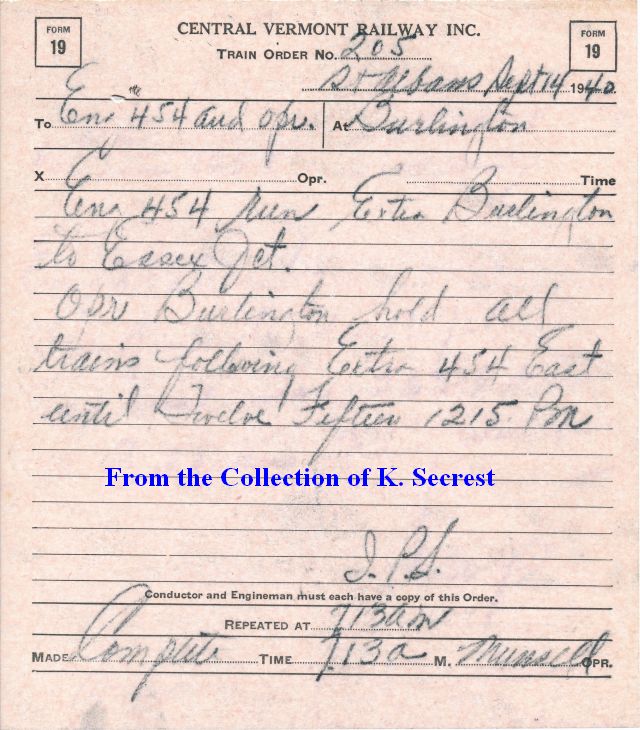 FORM 19 CENTRAL VERMONT RAILWAY INC. FORM 19
TRAIN ORDER No. 205
St Albans Sept 14 1940
To Eng 454 and opr. At Burlington
X Opr. Time
Eng 454 Run Extra Burlington
to Essex Jct.
Opr Burlington hold all
trains following Extra 454 East
until Twelve Fifteen 1215 Pm
From the Collection of K. Secrest
J. P. S.
Conductor and Engineman must each have a copy of this Order.
REPEATED AT 713am
MADE Complete TIME 713a M. Munsell OPR.